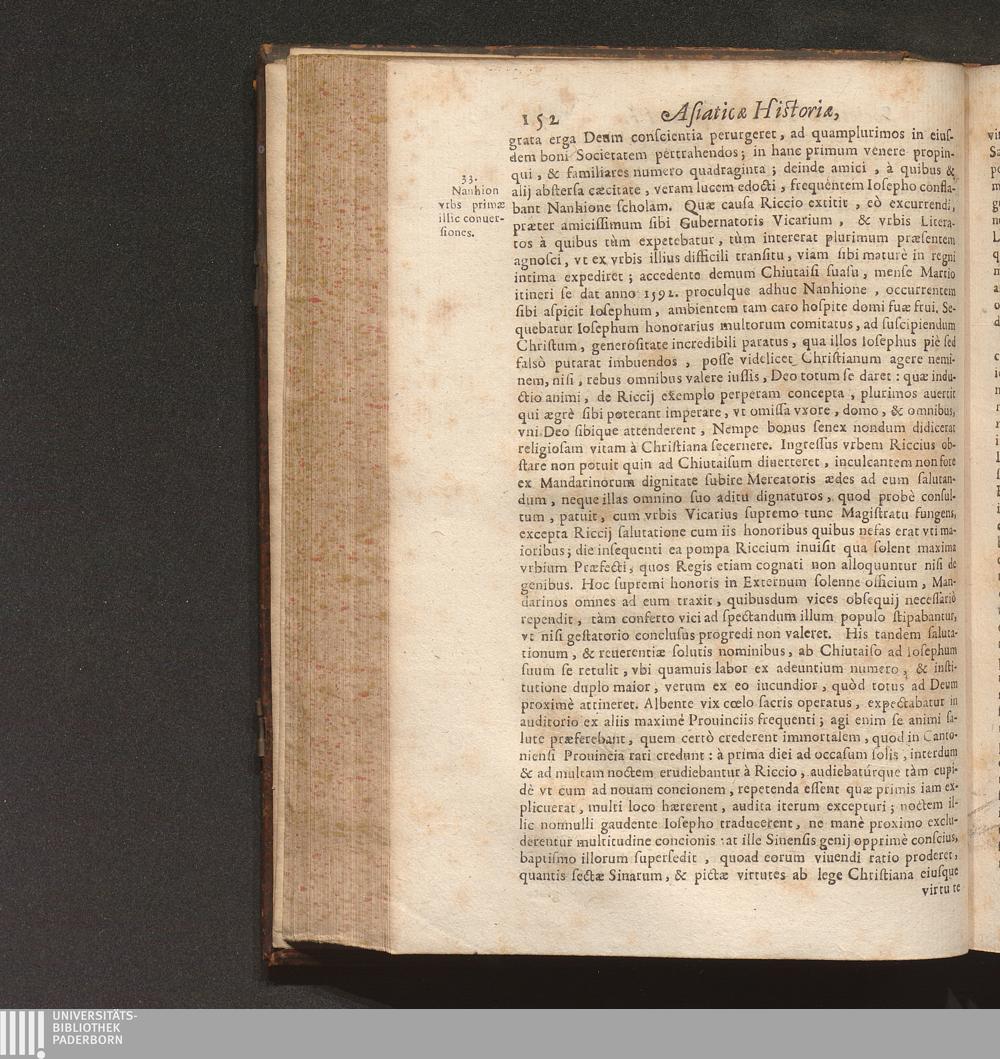 152 Asiaticæ Historiæ,
grata erga Deum conscientia perurgeret, ad quamplurimos in eius-
dem boni Societatem pertrahendos; in hanc primum venere propin-
qui, & familiares numero quadraginta; deinde amici, à quibus &
alij abstersa cæcitate, veram lucem edocti, frequentem Iosepho confla-
bant Nanhione scholam. Quæ causa Riccio extitit, eò excurrendi,
præter amicissimum sibi Gubernatoris Vicarium, & vrbis Litera-
tos à quibus tùm expetebatur, tùm intererat plurimum præsentem
agnosci, vt ex vrbis illius difficili transitu, viam sibi maturè in regni
intima expediret; accedente demum Chiutaisi suasu, mense Martio
itineri se dat anno 1592. proculque adhuc Nanhione, occurrentem
sibi aspicit Iosephum, ambientem tam caro hospite domi suæ frui. Se-
quebatur Iosephum honorarius multorum comitatus, ad suscipiendum
Christum, generositate incredibili paratus, qua illos Iosephus piè sed
falsò putarat imbuendos, posse videlicet Christianum agere nemi-
nem, nisi, rebus omnibus valere iussis, Deo totum se daret: quæ indu-
ctio animi, de Riccij exemplo perperam concepta, plurimos auertit
qui ægrè sibi poterant imperare, vt omissa vxore, domo, & omnibus,
vni Deo sibique attenderent, Nempe bonus senex nondum didicerat
religiosam vitam à Christiana secernere. Ingressus vrbem Riccius ob-
stare non potuit quin ad Chiutaisum diuerteret, inculcantem non fore
ex Mandarinorum dignitate subire Mercatoris ædes ad eum salutan-
dum, neque illas omnino suo aditu dignaturos, quod probè consul-
tum, patuit, cum vrbis Vicarius supremo tunc Magistratu fungens,
excepta Riccij salutatione cum iis honoribus quibus nefas erat vti ma-
ioribus; die insequenti ea pompa Riccium inuisit qua solent maxima
vrbium Præfecti, quos Regis etiam cognati non alloquuntur nisi de
genibus. Hoc supremi honoris in Externum solenne officium, Man-
darinos omnes ad eum traxit, quibusdum vices obsequij necessariò
rependit, tàm conferto vici ad spectandum illum populo stipabantur,
vt nisi gestatorio conclusus progredi non valeret. His tandem saluta-
tionum, & reuerentiæ solutis nominibus, ab Chiutaiso ad Iosephum
suum se retulit, vbi quamuis labor ex adeuntium numero, & insti-
tutione duplo maior, verum ex eo iucundior, quòd totus ad Deum
proximè attineret. Albente vix cœlo sacris operatus, expectabatur in
auditorio ex aliis maximè Prouinciis frequenti; agi enim se animi sa-
lute præferebant, quem certò crederent immortalem, quod in Canto-
niensi Prouincia rati credunt: à prima diei ad occasum solis, interdum
& ad multam noctem erudiebantur à Riccio, audiebatúrque tàm cupi-
dè vt cum ad nouam concionem, repetenda essent quæ primis iam ex-
plicuerat, multi loco hærerent, audita iterum excepturi; noctem il-
lic nonnulli gaudente Iosepho traducerent, ne manè proximo exclu-
derentur multitudine concionis: at ille Sinensis genij opprimè conscius,
baptismo illorum supersedit, quoad eorum viuendi ratio proderet,
quantis sectæ Sinarum, & pictæ virtutes ab lege Christiana eiusque
virtute
33.
Nanhion
vrbs primæ
illic conuer-
siones.
UNIVERSITÄTS-
BIBLIOTHEK
PADERBORN